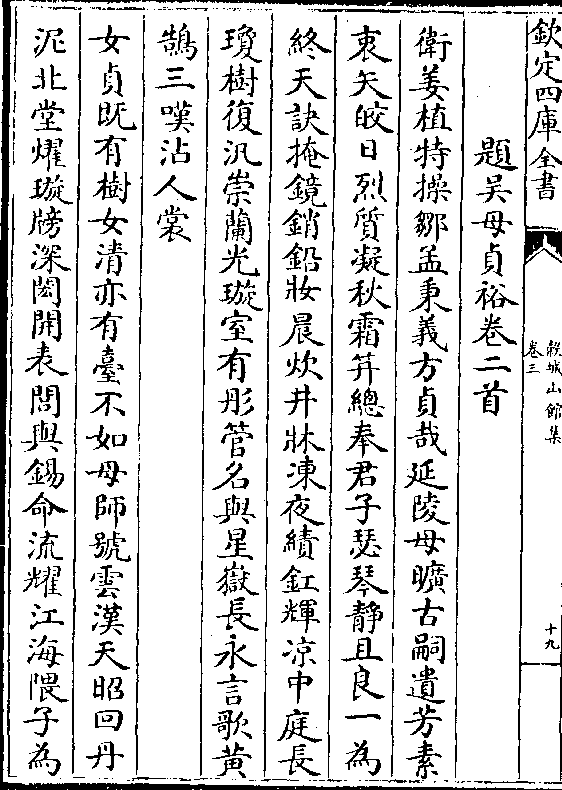 欽定四庫全書
糓城山館集
卷三
十九
題吴母貞裕卷二首
衛姜植特操鄒孟秉義方貞哉延陵母曠古嗣遺芳素
衷矢皎日烈質凝秋霜笄總奉君子瑟琴静且良一為
終天訣掩鏡銷鉛妝晨炊井牀凍夜績釭輝凉中庭長
瓊樹復汎崇蘭光璇室有彤管名與星嶽長永言歌黄
鵠三嘆沾人裳
女貞既有樹女清亦有臺不如母師號雲漢天昭回丹
泥北堂燿璇牓深閎開表閭與錫命流耀江海隈子為